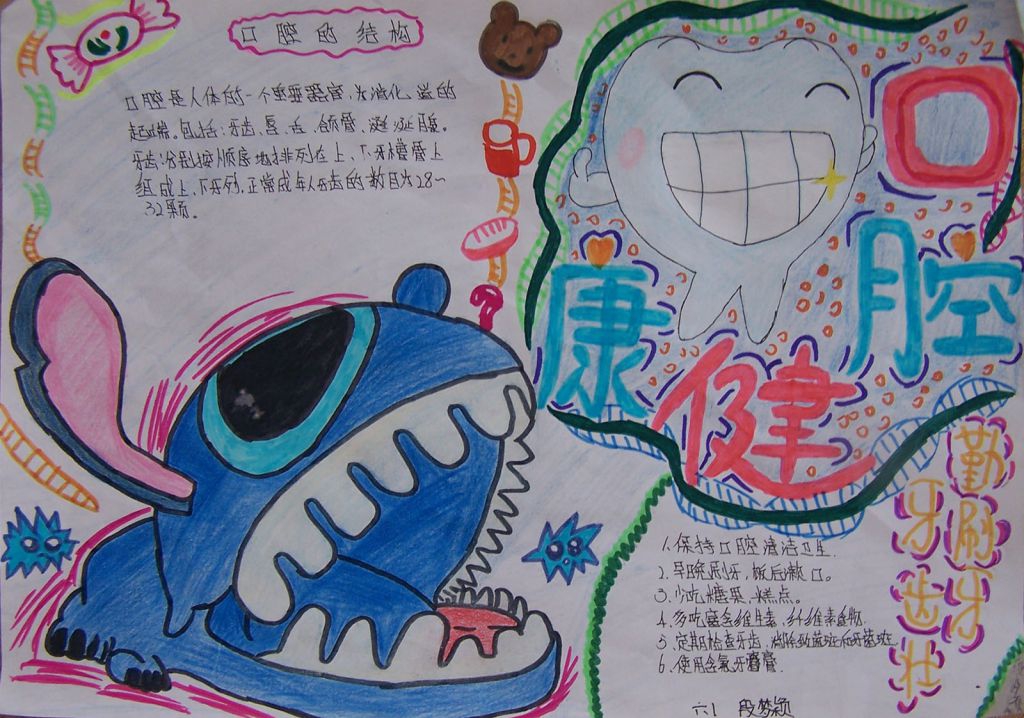 口腔的结构
口腔是人体的一个重要器官,为消化道的
起端。包括:牙齿、唇、舌、颌骨、涎腺。
牙齿分别按顺序地排列在上,下牙槽骨上
组成上,下牙列,正常成年人牙齿的数目为28~
32颗。
口
腔
健
康
勤刷牙
牙齿壮
1.保持口腔清洁卫生.
2.早晚刷牙,饭后漱口。
3.少吃糖果,糕点。
4.多吃富含维生素,纤维素食物.
5.定期检查牙齿,消除致菌斑和牙菌斑
6.使用含氟牙膏
六1 段梦颖